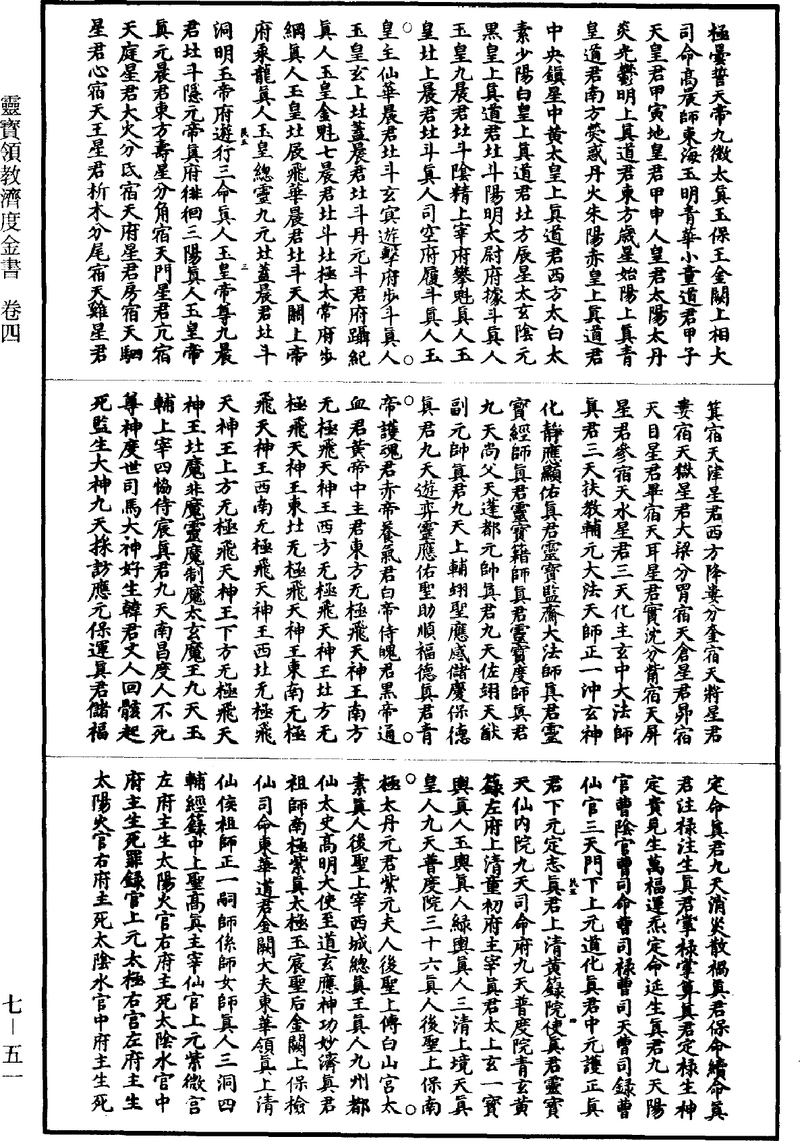 極曇誓天帝九微太真玉保王金闕上相大
司命高晨師東海玉明青華小童道君甲子
天皇君甲寅地皇君甲申人皇君太陽太丹
炎光鬱明上真道君東方歲星始陽上真青
皇道君南方熒惑丹火朱陽赤皇上真道君
中央鎮星中黃太皇上真道君西方太白太
素少陽白皇上真道君北方辰星太玄陰元
黑皇上真道君北斗陽明太尉府據斗真人
玉皇九晨君北斗陰精上宰府攀魁真人玉
皇北上晨君北斗真人司空府履斗真人玉
皇主仙華晨君北斗玄冥遊擊府步斗真人
玉皇玄上北蓋晨君北斗丹元斗君府躡紀
真人玉皇金魁七晨君北斗北極太常府步
綱真人玉皇北辰飛華晨君北斗天關上帝
府乘龍真人玉皇總靈九元北蓋晨君北斗
洞明玉帝府遊行三命真人玉皇帝尊九晨
君北斗隱元帝真府徘徊三陽真人玉皇帝
真元晨君東方壽星分角宿天門星君亢宿
天庭星君大火分氐宿天府星君房宿天駟
星君心宿天王星君析木分尾宿天雞星君
箕宿天津星君西方降婁分奎宿天將星君
婁宿天獄星君大梁分胃宿天倉星君昴宿
天目星君畢宿天耳星君實沈分觜宿天屏
星君參宿天水星君三天化主玄中大法師
真君三天扶教輔元大法天師正一沖玄神
化靜應顯佑真君靈寶監齋大法師真君靈
寶經師真君靈寶籍師真君靈寶度師真君
九天尚父天蓬都元帥真君九天佐翊天猷
副元帥真君九天上輔翊聖應感儲慶保德
真君九天遊奕靈應佑聖助順福德真君青
帝護魂君赤帝養氣君白帝侍魄君黑帝通
血君黃帝中主君東方无極飛天神王南方
无極飛天神王西方无極飛天神王北方无
極飛天神王東北无極飛天神王東南无極
飛天神王西南无極飛天神王西北无極飛
天神王上方无極飛天神王下方无極飛天
神王北魔非魔靈魔制魔太玄魔王九天玉
輔上宰四協侍宸真君九天南昌度人不死
尊神度世司馬大神好生韓君丈人回骸起
死監生大神九天採訪應元保運真君儲福
定命真君九天消災散禍真君保命續命真
君注祿注生真君掌祿掌算真君定祿生神
定貴見生萬福運炁定命延生真君九天陽
官曹陰官曹司命曹司祿曹司天曹司錄曹
仙官三天門下上元道化真君中元護正真
君下元定志真君上清黃籙院使真君靈寶
天仙內院九天司命府九天普度院青玄黃
籙左府上清童初府主宰真君太上玄一寶
輿真人玉輿真人綠輿真人三清上境天真
皇人九天普度院三十六真人後聖上保南
極太丹元君紫元夫人後聖上傅白山宮太
素真人後聖上宰西城總真王真人九州都
仙太史高明大使至道玄應神功妙濟真君
祖師南極紫真太極玉宸聖后金闕上保檢
仙司命東華道君金闕大夫東華領真上清
仙侯祖師正一嗣師係師女師真人三洞四
輔經籙中上聖高真主宰仙官上元紫微宮
左府主生太陽火官右府主死太陰水官中
府主生死罪錄官上元太極右宮左府主生
太陽火官右府主死太陰水官中府主生死
靈寶領教濟度金書 卷四
七－五一